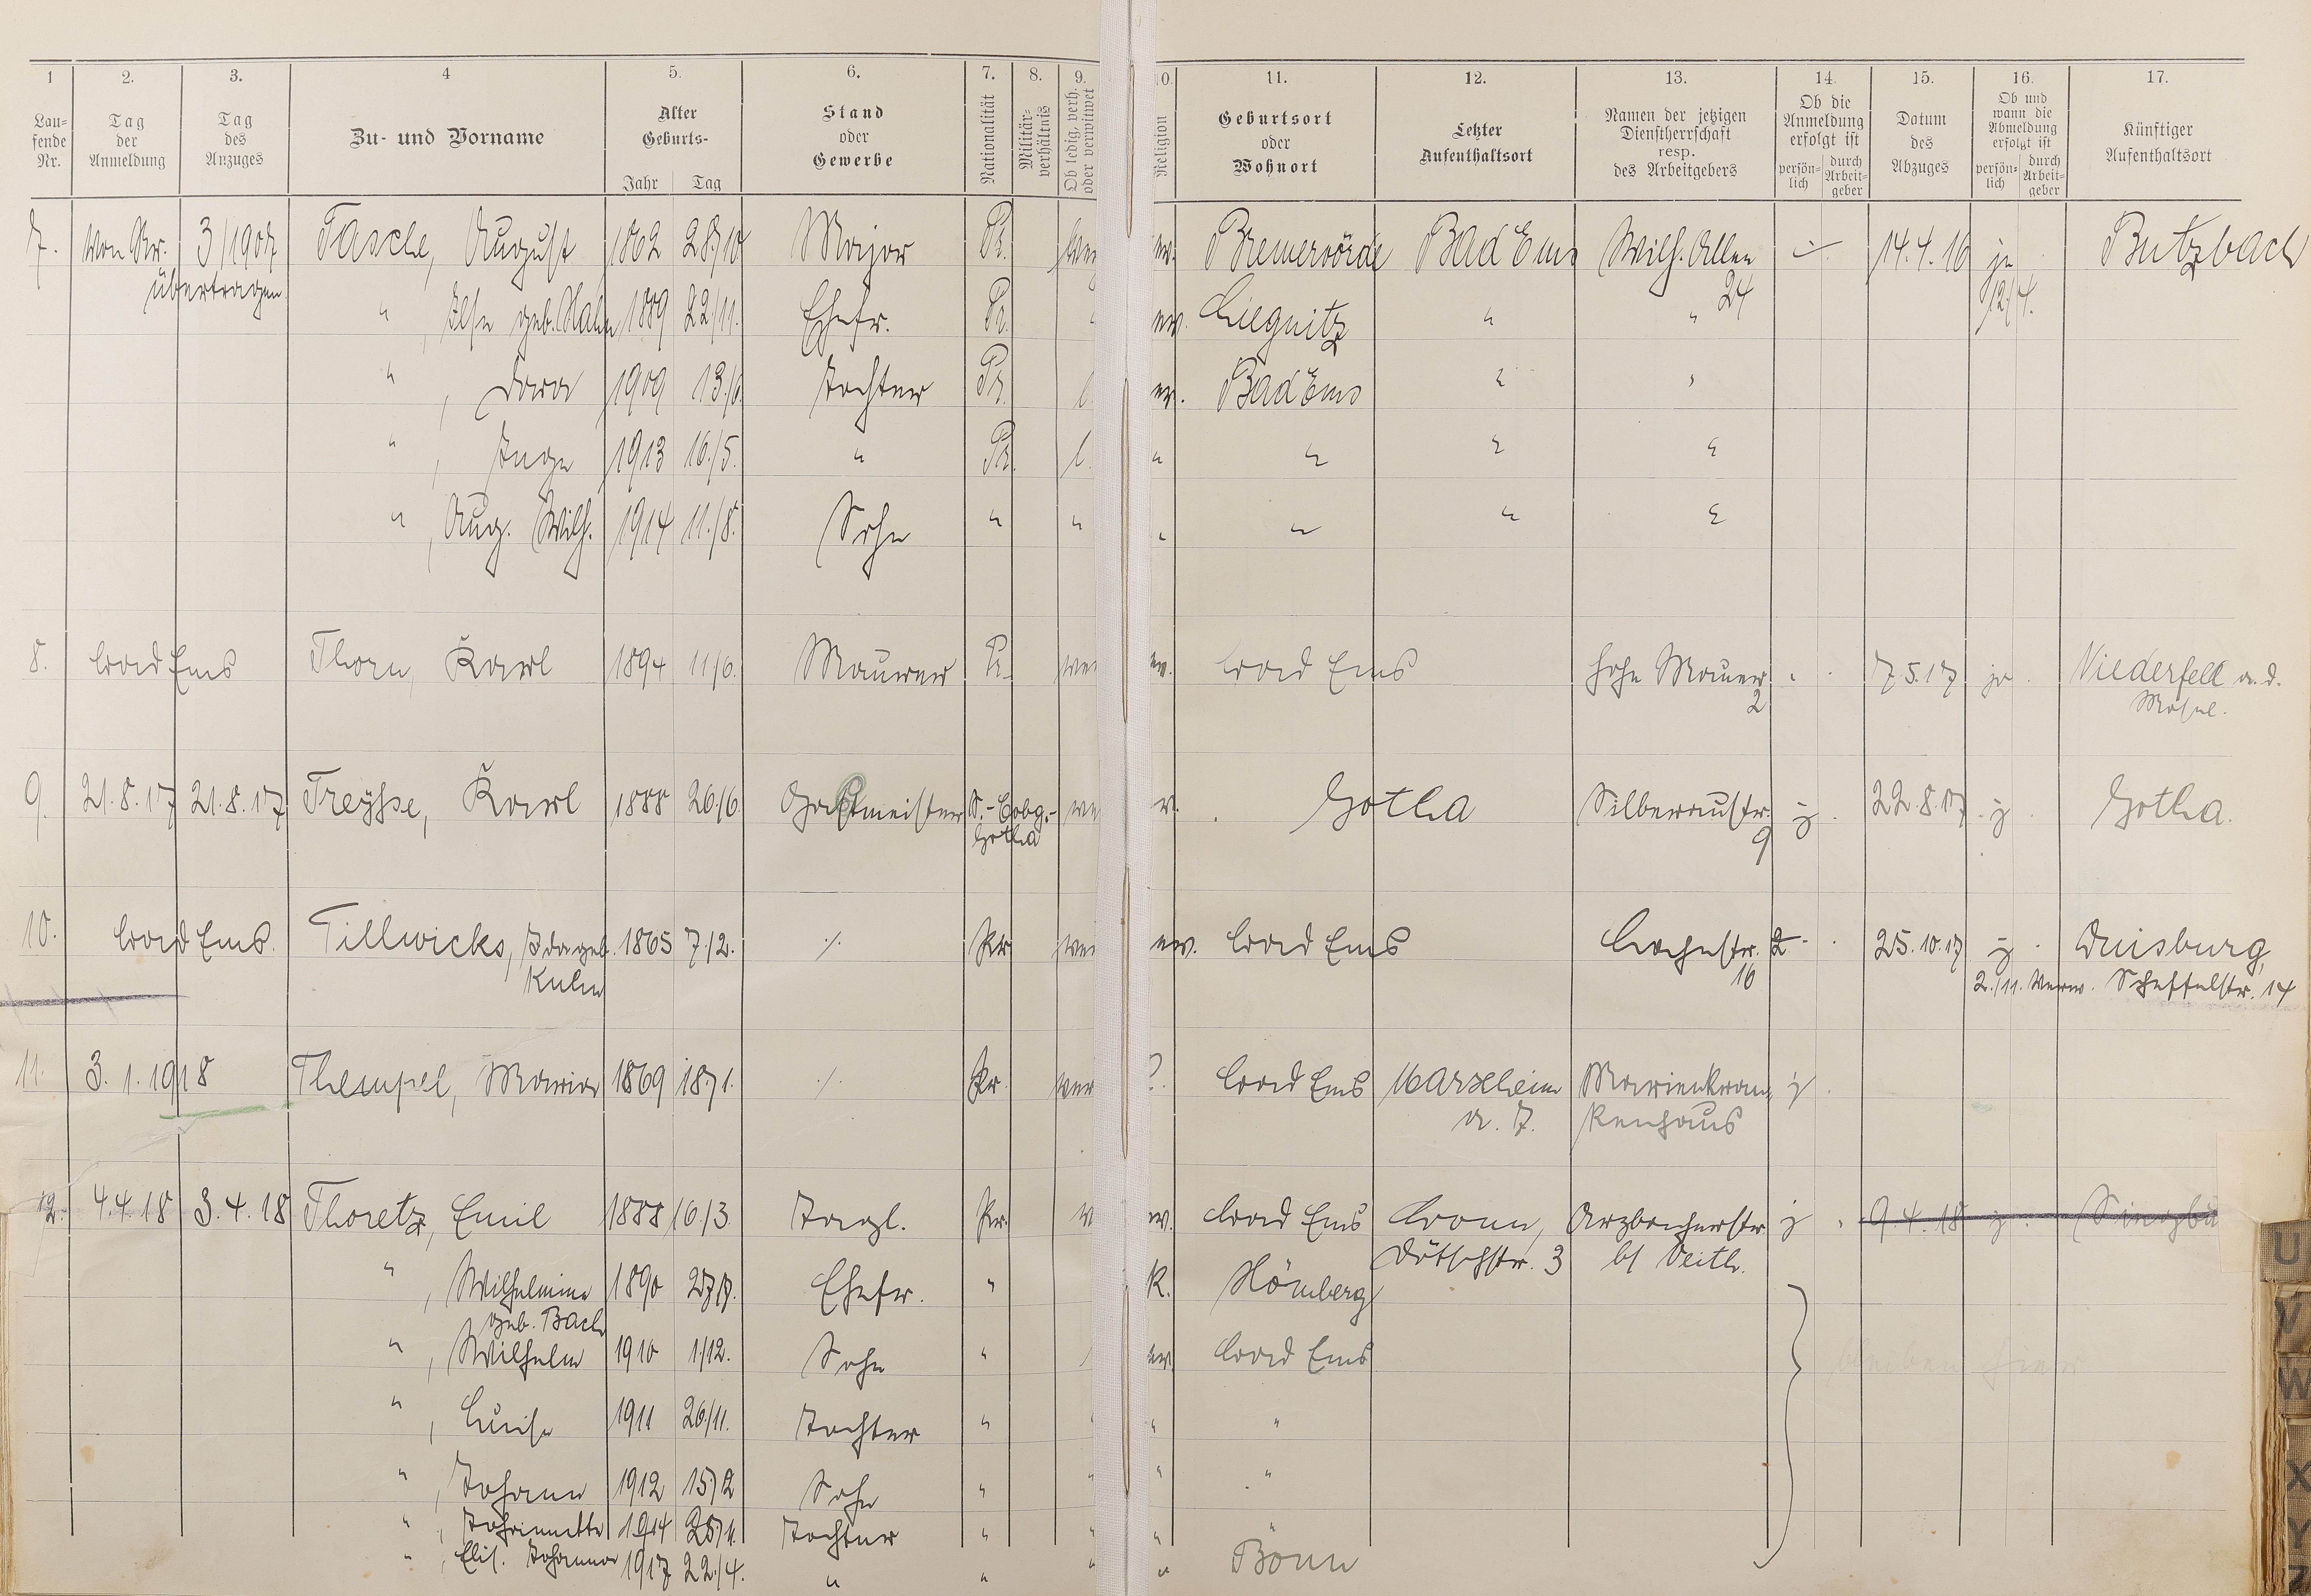 1 2. 3. 4 5. 6. 7. 8. 9. 10. 11. 12. 13. 14. 15. 16. 17.
Laufende Nr.
Tag der Anmeldung
Tag des Anzuges
Zu- und Vorname
Alter Geburts- Jahr Tag
Stand oder Gewerbe
Nationalität
Militärverhältnis
Ob ledig, verh. oder verwitwet
Religion
Geburtsort oder Wohnort
Letzter Aufenthaltsort
Namen der jetzigen Dienstherrschaft resp. des Arbeitgebers
Ob die Anmeldung erfolgt ist persönlich durch Arbeitgeber
Datum des Abzuges
Ob und wann die Abmeldung erfolgt ist persönlich durch Arbeitgeber
Künftiger Aufenthaltsort
7. Von Nr. 3/1907 Tasche, August 1862 28/10 Major Pr. ev. Bremervörde Bad Ems Wilh. Allee 14.4.16 ja Butzbach
übertragen 24 12./4.
" , Ilse geb. Hahn 1889 22/11. Ehefr. Pr. ev. Liegnitz " "
" , Dora 1909 13./6. Tochter Pr. l. ev. Bad Ems " "
" , Inge 1913 16./5. " Pr. l. " " " "
" , Aug. Wilh. 1914 11./8. Sohn " " " " " "
8. Bad Ems Thorn, Karl 1894 11/6. Maurer Pr. ev. Bad Ems Hohe Mauer 7.5.17 ja Niederfell a. d.
2 Mosel.
9. 21.8.17 21.8.17 Treyße, Karl 1888 26/6 Gastmeister S.-Cobg.- ev. Gotha Silberaustr. j 22.8.17 j Gotha.
Gotha 9
10. Bad Ems. Tillwicks, Ida geb. 1865 7./2. ./. Pr. ev. Bad Ems Lahnstr. 2 25.10.17 j Duisburg,
Kulm 16 2./11. Verw. Scheffelstr. 14
11. 3.1.1918 Thempel, Maria 1869 18/1. ./. Pr. Bad Ems Marxheim Marienkran- j
a. T. kenhaus
12. 4.4.18 3.4.18 Thoretz, Emil 1888 16/3 Tagl. Pr. ev. Bad Ems Bonn, Arzbacherstr. j 9.4.18 j
Dötschstr. 3 bei Veith.
" , Wilhelmine 1890 27/7. Ehefr. " K. Hömberg
geb. Bach
" , Wilhelm 1910 1/12. Sohn " ev. Bad Ems bleiben hier
" , Luise 1911 26/11. Tochter " " "
" , Johann 1912 15/2 Sohn " " "
" , 1914 25/11. Tochter " " "
" , Elis. Johanna 1917 22./4. " " " Bonn
U
V
W
X
Y
Z